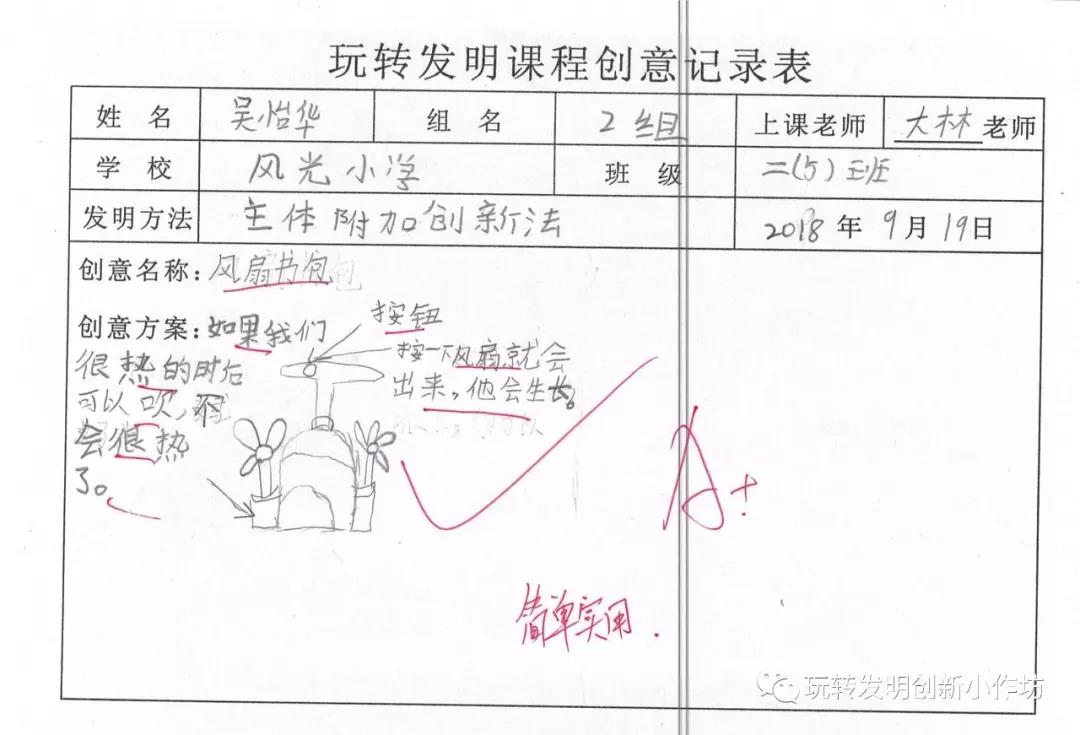 玩转发明课程创意记录表
姓 名 吴怡华 组 名 2组 上课老师 大林 老师
学 校 风光小学 班 级 二(5)班
发明方法 主体附加创新法 2018年9月19日
创意名称:风扇书包
创意方案:如果我们
很热的时后
可以吹,不
会很热
了。
按钮
按一下风扇就会
出来,他会生长。
A+
简单实用.
玩转发明创新小作坊